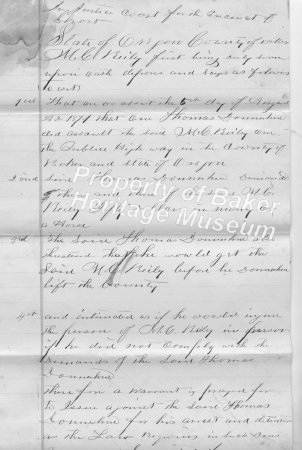 In Justice Court for the Precinct of
State of Oregon County of Baker
M. C. Reily first being duly sworn
upon oath deposes and says as follows
to wit
1st That on or about the 5th day of August
1871 that one Thomas Donnahue
did assault the said M. C. Reily on
the Publick High way in the County of
Baker and State of Oregon
2ond Said Thomas Donnahue demanded
then and there of said M. C.
Reily Fifty Dollars in money or
a Horse
3rd The Said Thomas Donnahue also
threatend that he would get the
Said M. C. Reily before he Donnahue
left the County
4st and intimated as if he would injure
the person of M. C. Reily in person
if he did not comply with the
demands of the Said Thomas
Donnahue
therefore a warrant is prayed for
to Issue against the Said Thomas
Donnahue for his arrest and detention
as the Law Requires in Such Cases
Property of Baker
Heritage Museum